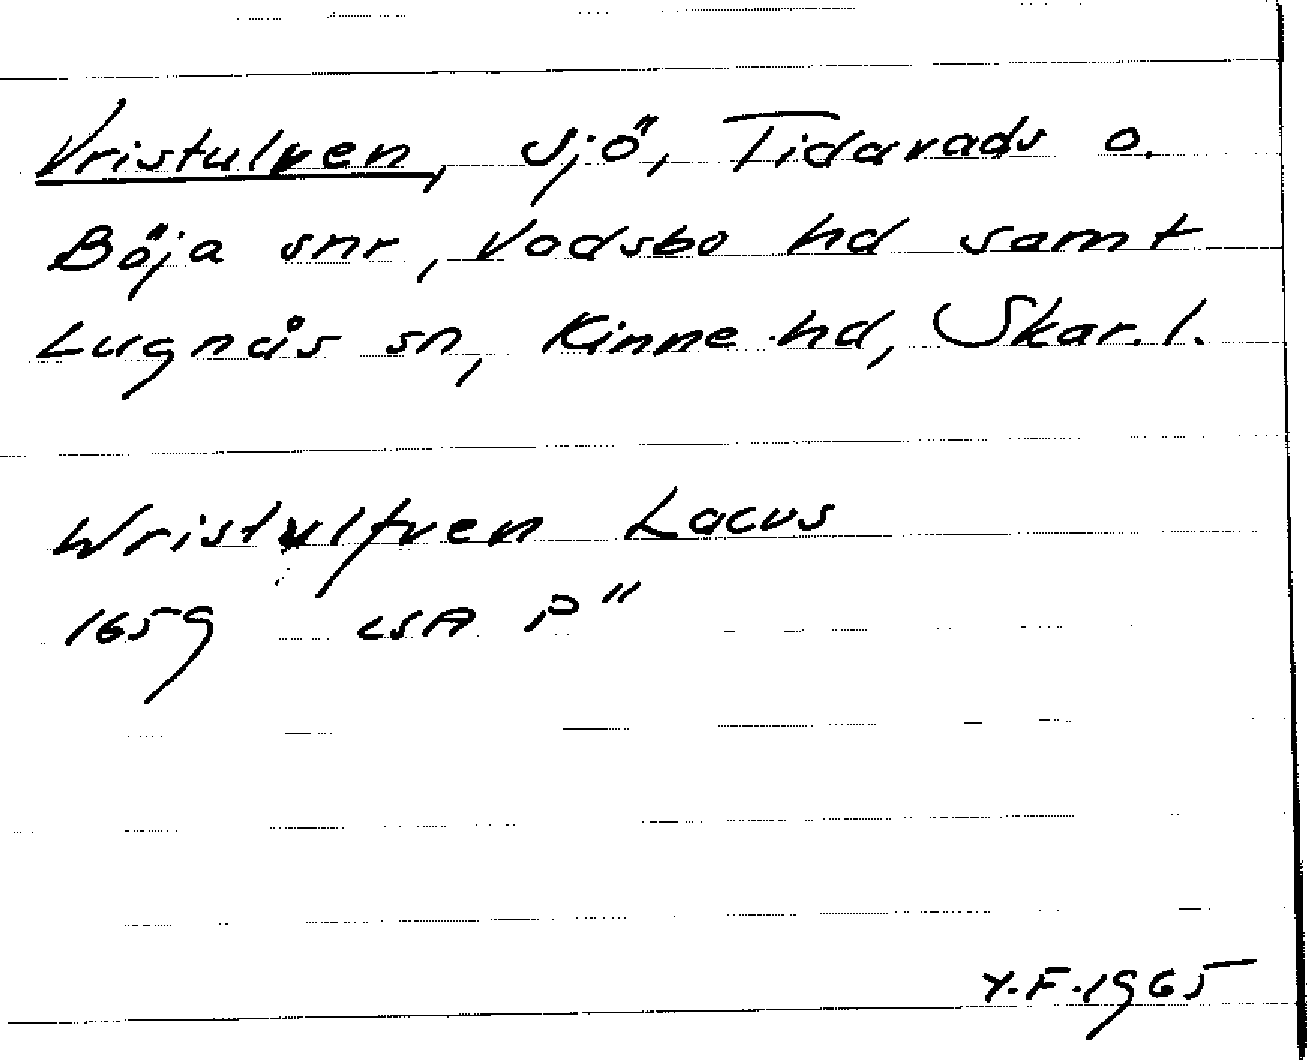 Vristulven, sjö, Tidavads o.
Böja snr, Vadsbo hd samt
Lugnås sn, Kinne hd, Skar. l.
Wristulfven Lacus
1659 LSA P"
Y.F. 1965